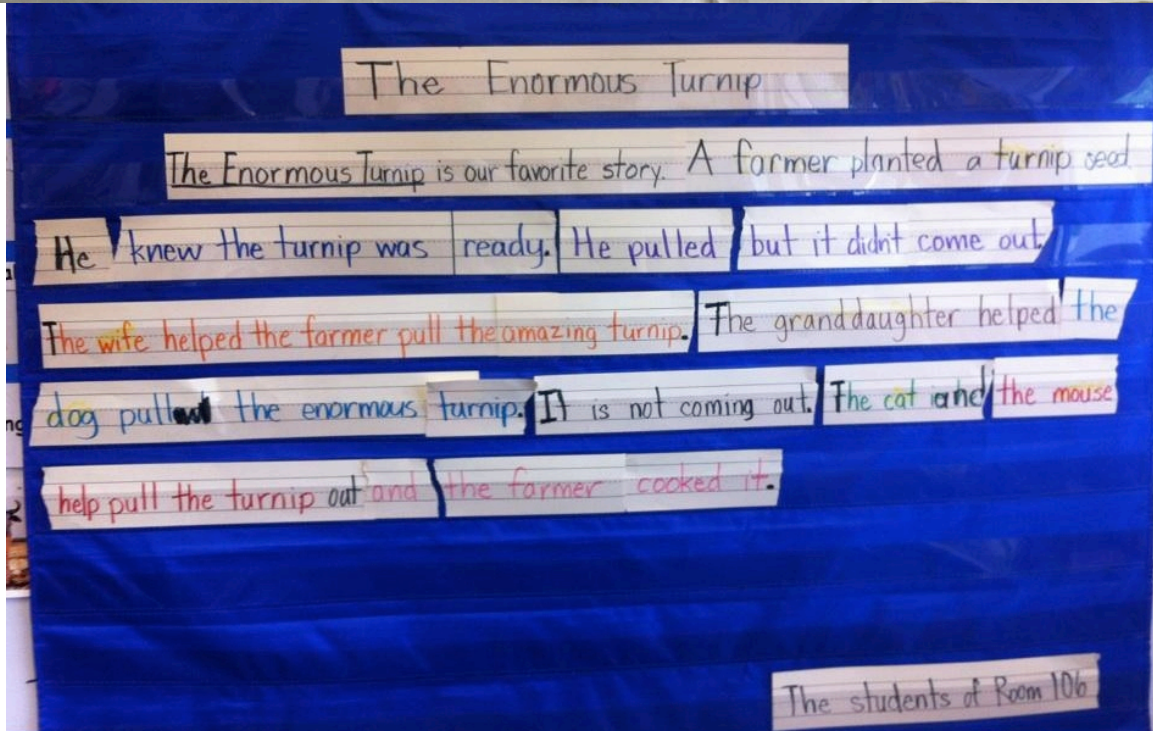 The Enormous Turnip
The Enormous Turnip is our favorite story. A farmer planted a turnip seed.
He knew the turnip was ready. He pulled but it didn't come out.
The wife helped the farmer pull the amazing turnip. The granddaughter helped the
dog pull the enormous turnip. It is not coming out. The cat and the mouse
help pull the turnip out and the farmer cooked it.
The students of Room 106